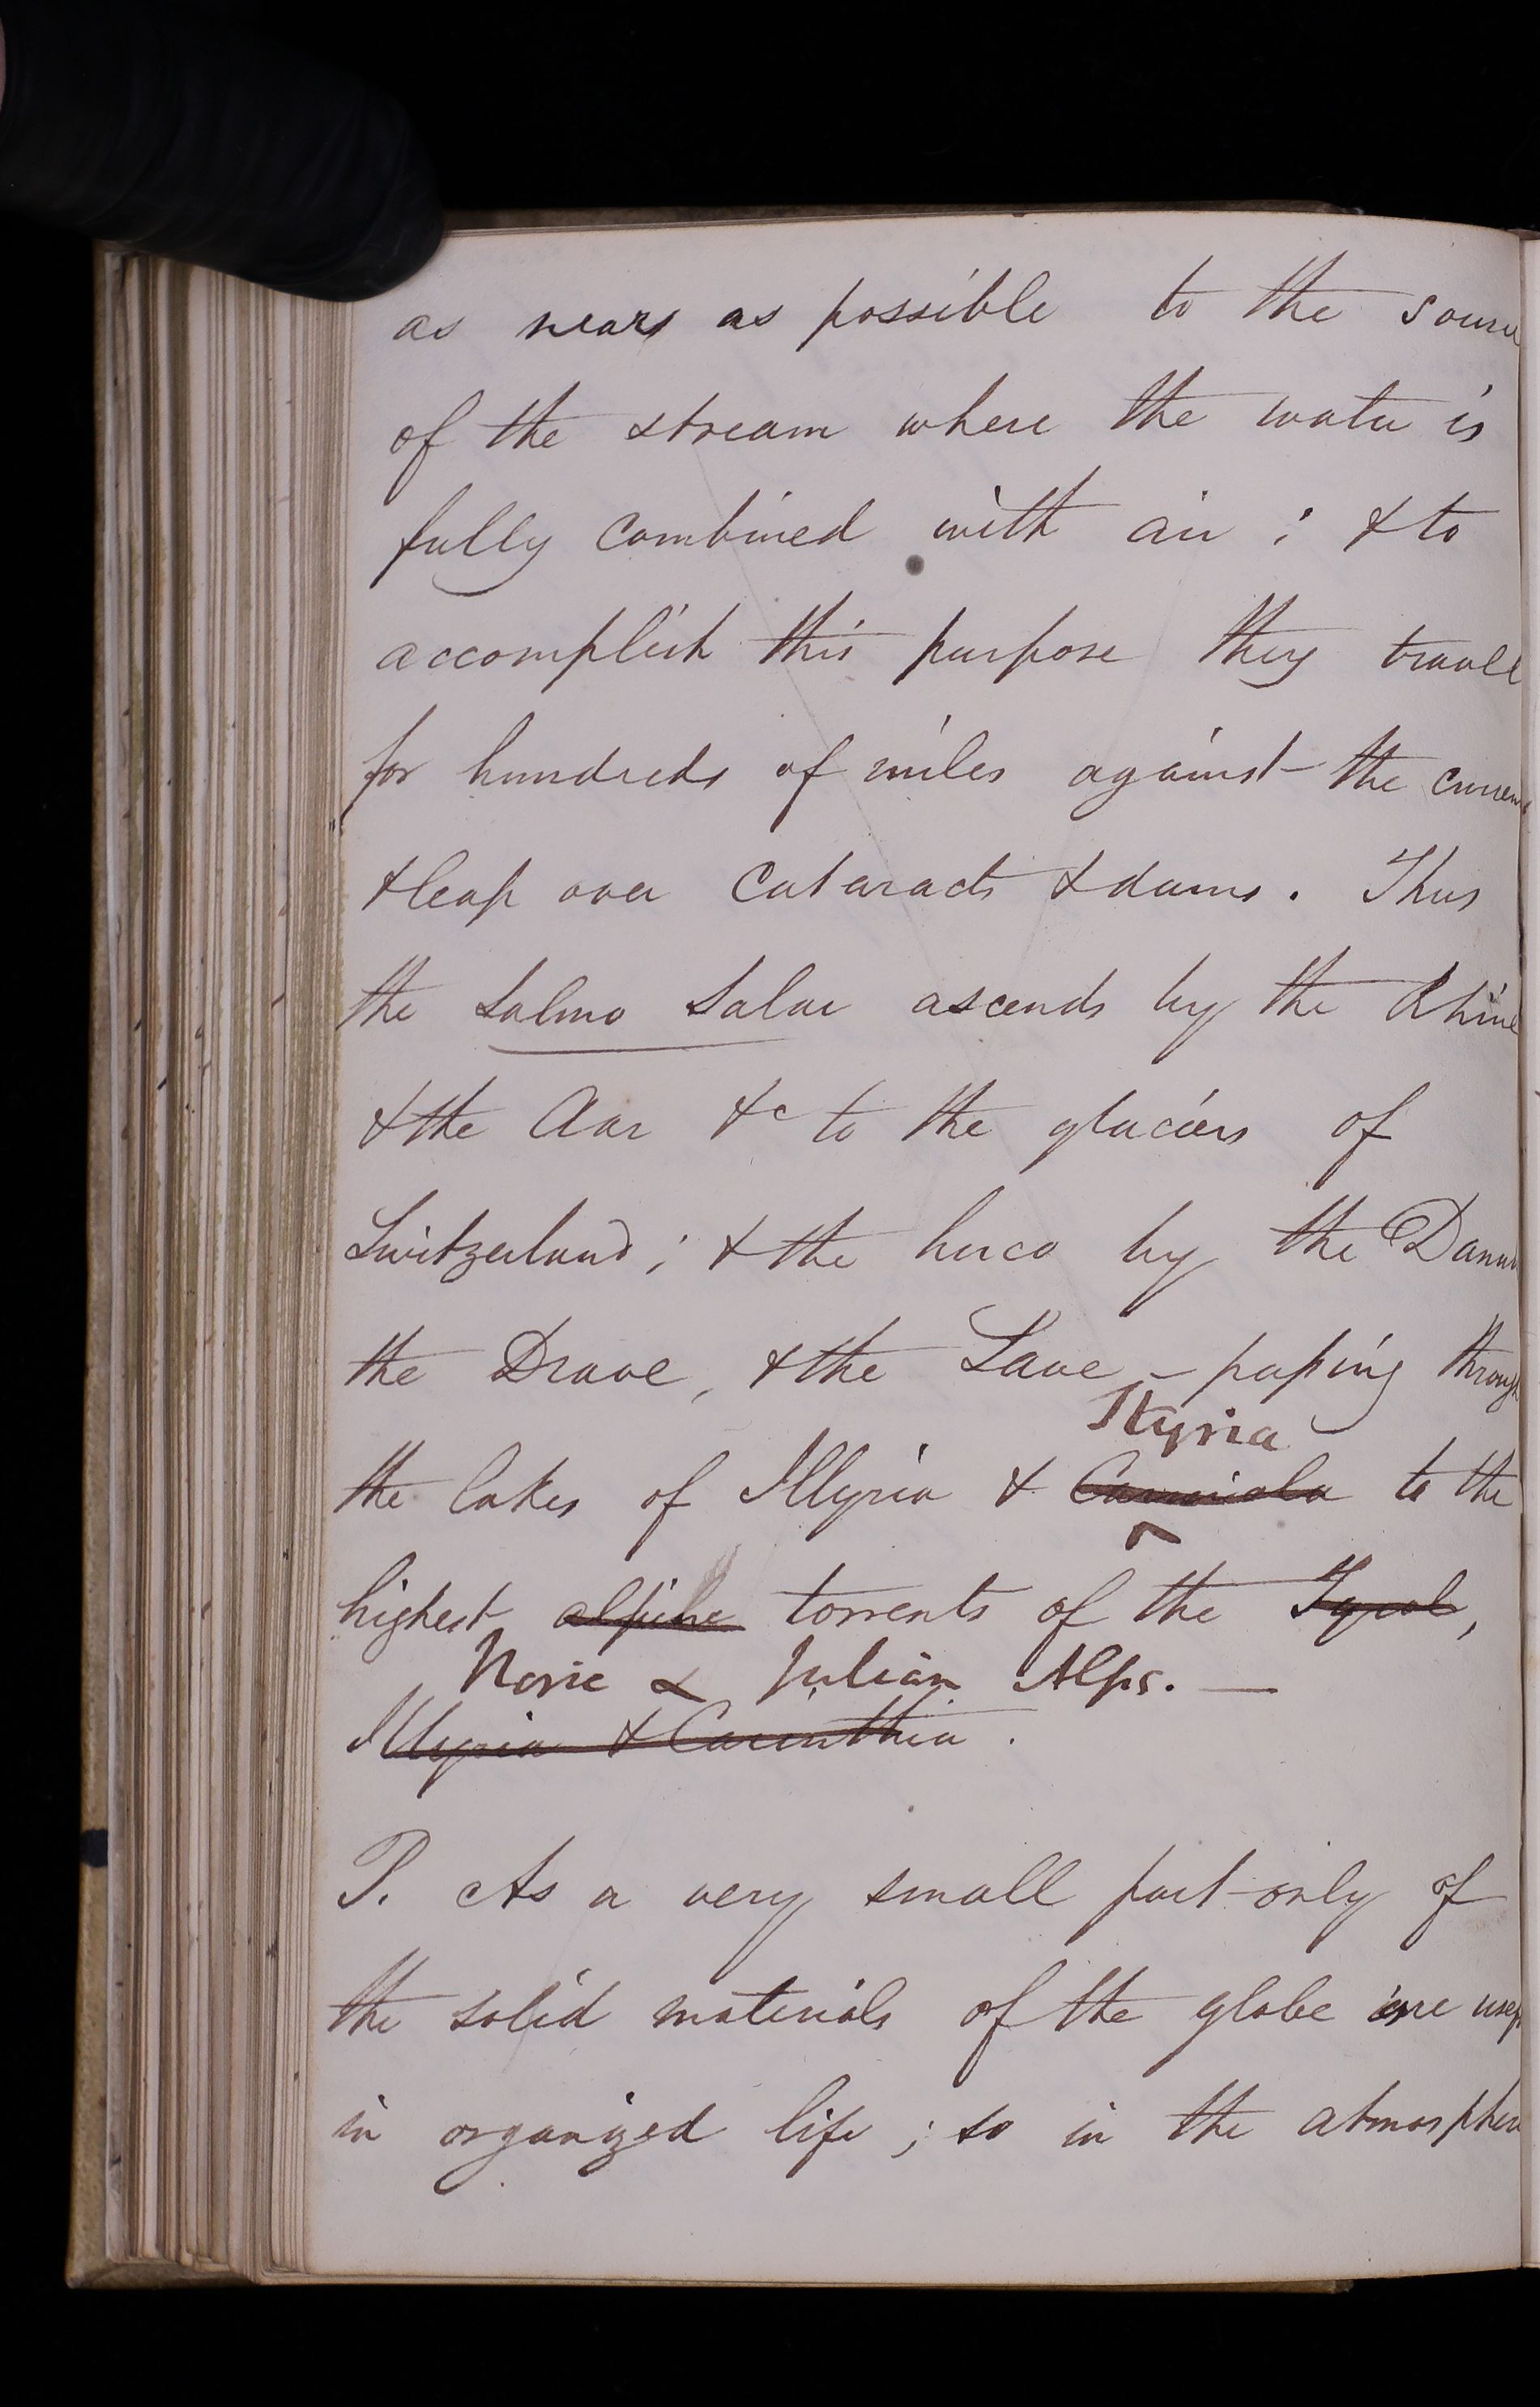 as near as possible to the source
of the stream where the water is
fully combined with air ; & to
accomplish this purpose they travel
for hundreds of miles against the current
& leap over cataracts & dams . Thus
the Salmo Salar ascends by the Rhine
& the Aar &c to the glaciers of
Switzerland ; & the huco by the Danube
the Drave, & the Save – passing through
Styria
the lakes of Illyria & Carniola to the
highest alpine torrents of the Tyrol,
Noric & Julian Alps. —
Illyria & Carinthia .
P. As a very small part only of
the solid materials of the globe are used
in organized life ; so in the atmosphere